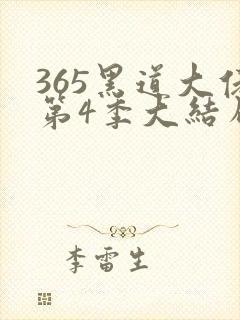 365黑道大
第4季大結
李雷生